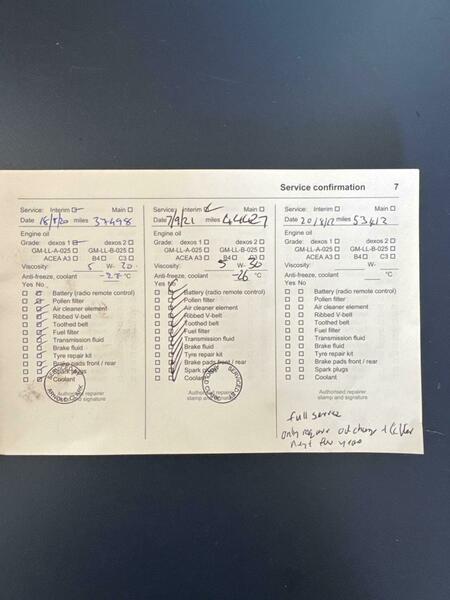 Service confirmation 7
Service: Interim Main
Date 18/8/20 miles 37498
Engine oil
Grade: dexos 1 dexos 2
GM-LL-A-025 GM-LL-B-025
ACEA A3 B4 C3
Viscosity: 5 W- 30
Anti-freeze, coolant -27 °C
Yes No
Battery (radio remote control)
Pollen filter
Air cleaner element
Ribbed V-belt
Toothed belt
Fuel filter
Transmission fluid
Brake fluid
Tyre repair kit
Brake pads front / rear
Spark plugs
Coolant
Authorised repairer
stamp and signature
ARNOLD CLARK
Service: Interim Main
Date 7/9/21 miles 44427
Engine oil
Grade: dexos 1 dexos 2
GM-LL-A-025 GM-LL-B-025
ACEA A3 B4 C3
Viscosity: 5 W- 30
Anti-freeze, coolant -26 °C
Yes No
Battery (radio remote control)
Pollen filter
Air cleaner element
Ribbed V-belt
Toothed belt
Fuel filter
Transmission fluid
Brake fluid
Tyre repair kit
Brake pads front / rear
Spark plugs
Coolant
Authorised repairer
stamp and signature
ARNOLD CLARK
Service: Interim Main
Date miles 53412
Engine oil
Grade: dexos 1 dexos 2
GM-LL-A-025 GM-LL-B-025
ACEA A3 B4 C3
Viscosity: W-
Anti-freeze, coolant °C
Yes No
Battery (radio remote control)
Pollen filter
Air cleaner element
Ribbed V-belt
Toothed belt
Fuel filter
Transmission fluid
Brake fluid
Tyre repair kit
Brake pads front / rear
Spark plugs
Coolant
Authorised repairer
stamp and signature
full service
only require oil change
next year